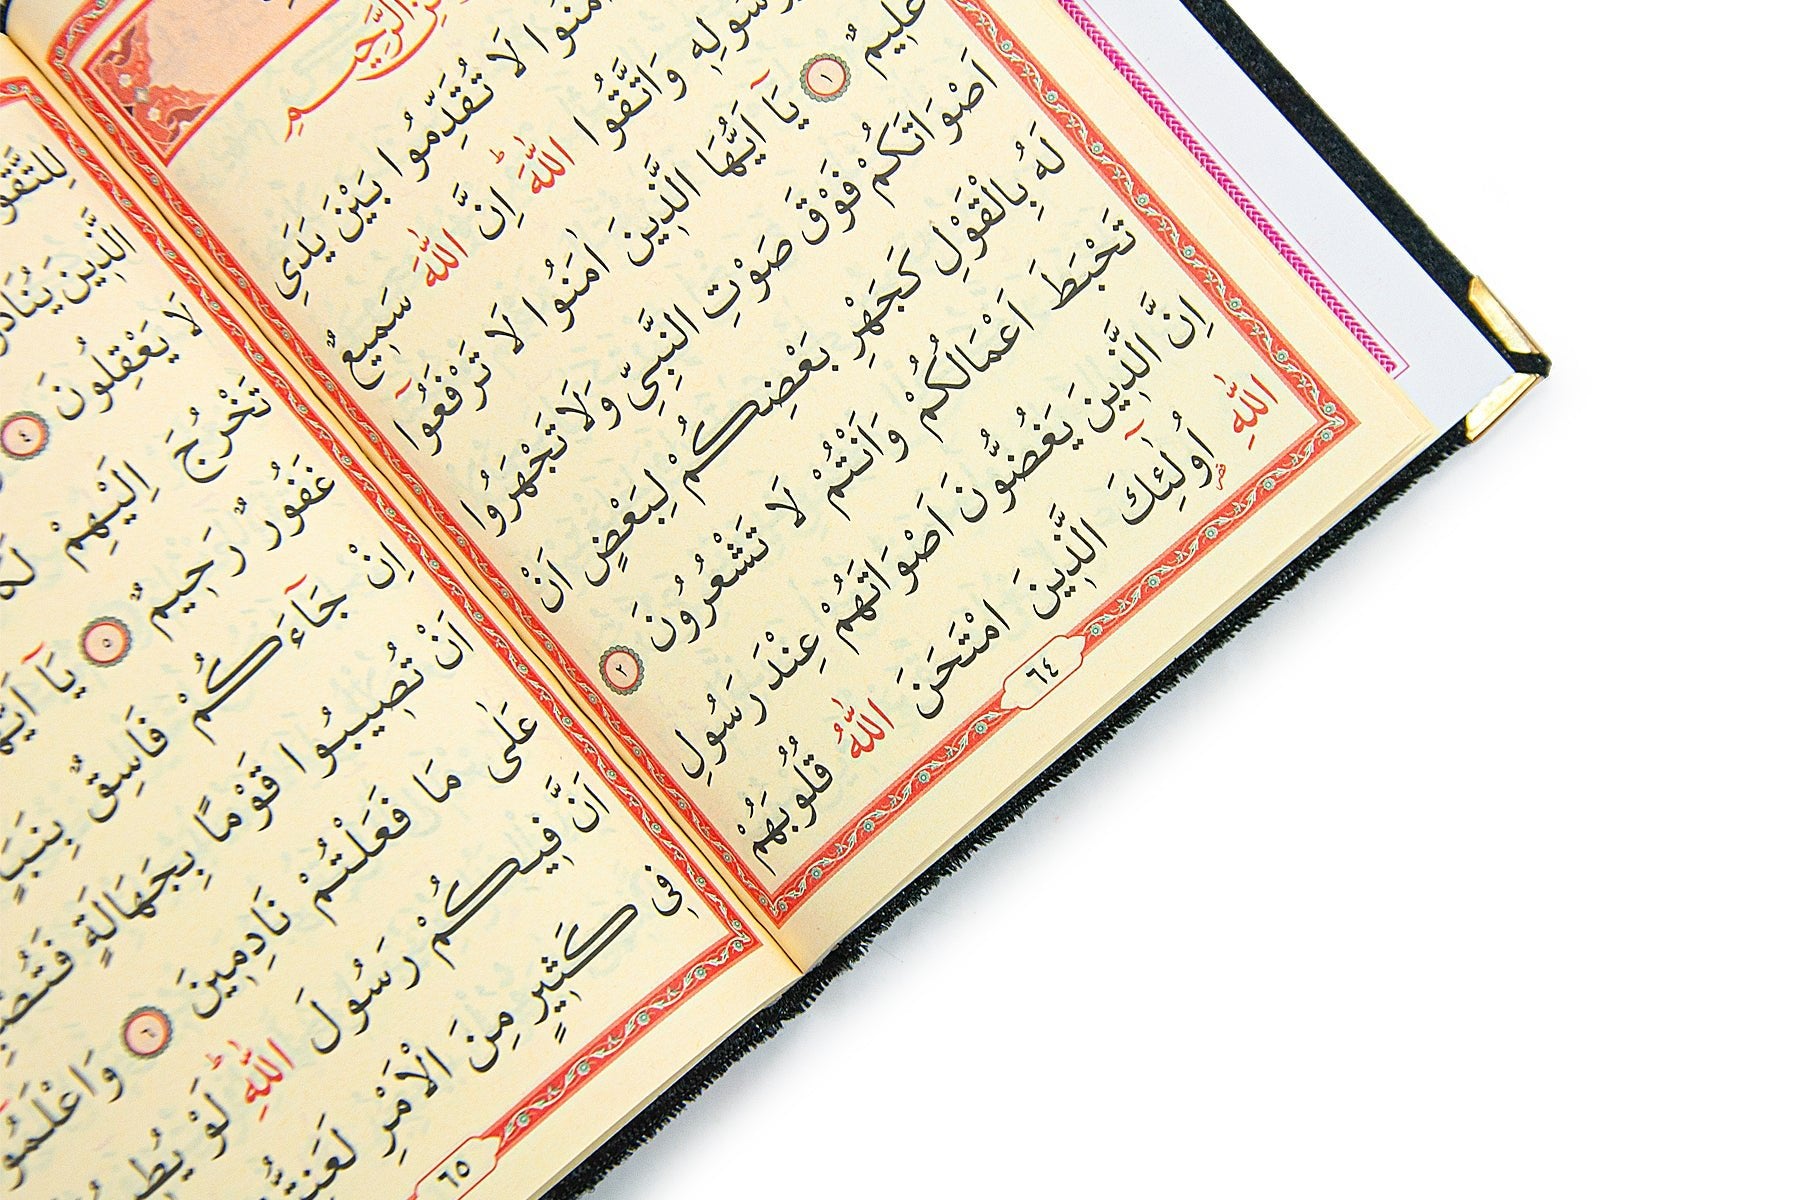 الرَّحِيمِ
اٰمَنُوا لَا تُقَدِّمُوا بَيْنَ يَدَىِ
رَسُولِهٖ وَاتَّقُوا اللّٰهَ اِنَّ اللّٰهَ سَمِيعٌ
عَلِيمٌ ١ يَٓا اَيُّهَا الَّذِينَ اٰمَنُوا لَا تَرْفَعُٓوا
اَصْوَاتَكُمْ فَوْقَ صَوْتِ النَّبِىِّ وَلَا تَجْهَرُوا
لَهُ بِالْقَوْلِ كَجَهْرِ بَعْضِكُمْ لِبَعْضٍ اَنْ
تَحْبَطَ اَعْمَالُكُمْ وَاَنْتُمْ لَا تَشْعُرُونَ ٢
اِنَّ الَّذِينَ يَغُضُّونَ اَصْوَاتَهُمْ عِنْدَ رَسُولِ
اللّٰهِ اُولٰٓئِكَ الَّذِينَ امْتَحَنَ اللّٰهُ قُلُوبَهُمْ
٦٤
لِلتَّقْوٰى
الَّذِينَ يُنَادُ
لَا يَعْقِلُونَ ٤
تَخْرُجَ اِلَيْهِمْ
غَفُورٌ رَحِيمٌ ٥ يَٓا اَيُّهَا
اِنْ جَٓاءَكُمْ فَاسِقٌ بِنَبَاٍ
اَنْ تُصِيبُوا قَوْمًا بِجَهَالَةٍ
عَلٰى مَا فَعَلْتُمْ نَادِمِينَ ٦ وَاعْلَمُٓوا
اَنَّ فِيكُمْ رَسُولَ اللّٰهِ لَوْ
فِى كَثِيرٍ مِنَ الْاَمْرِ لَعَنِتُّمْ
٦٥